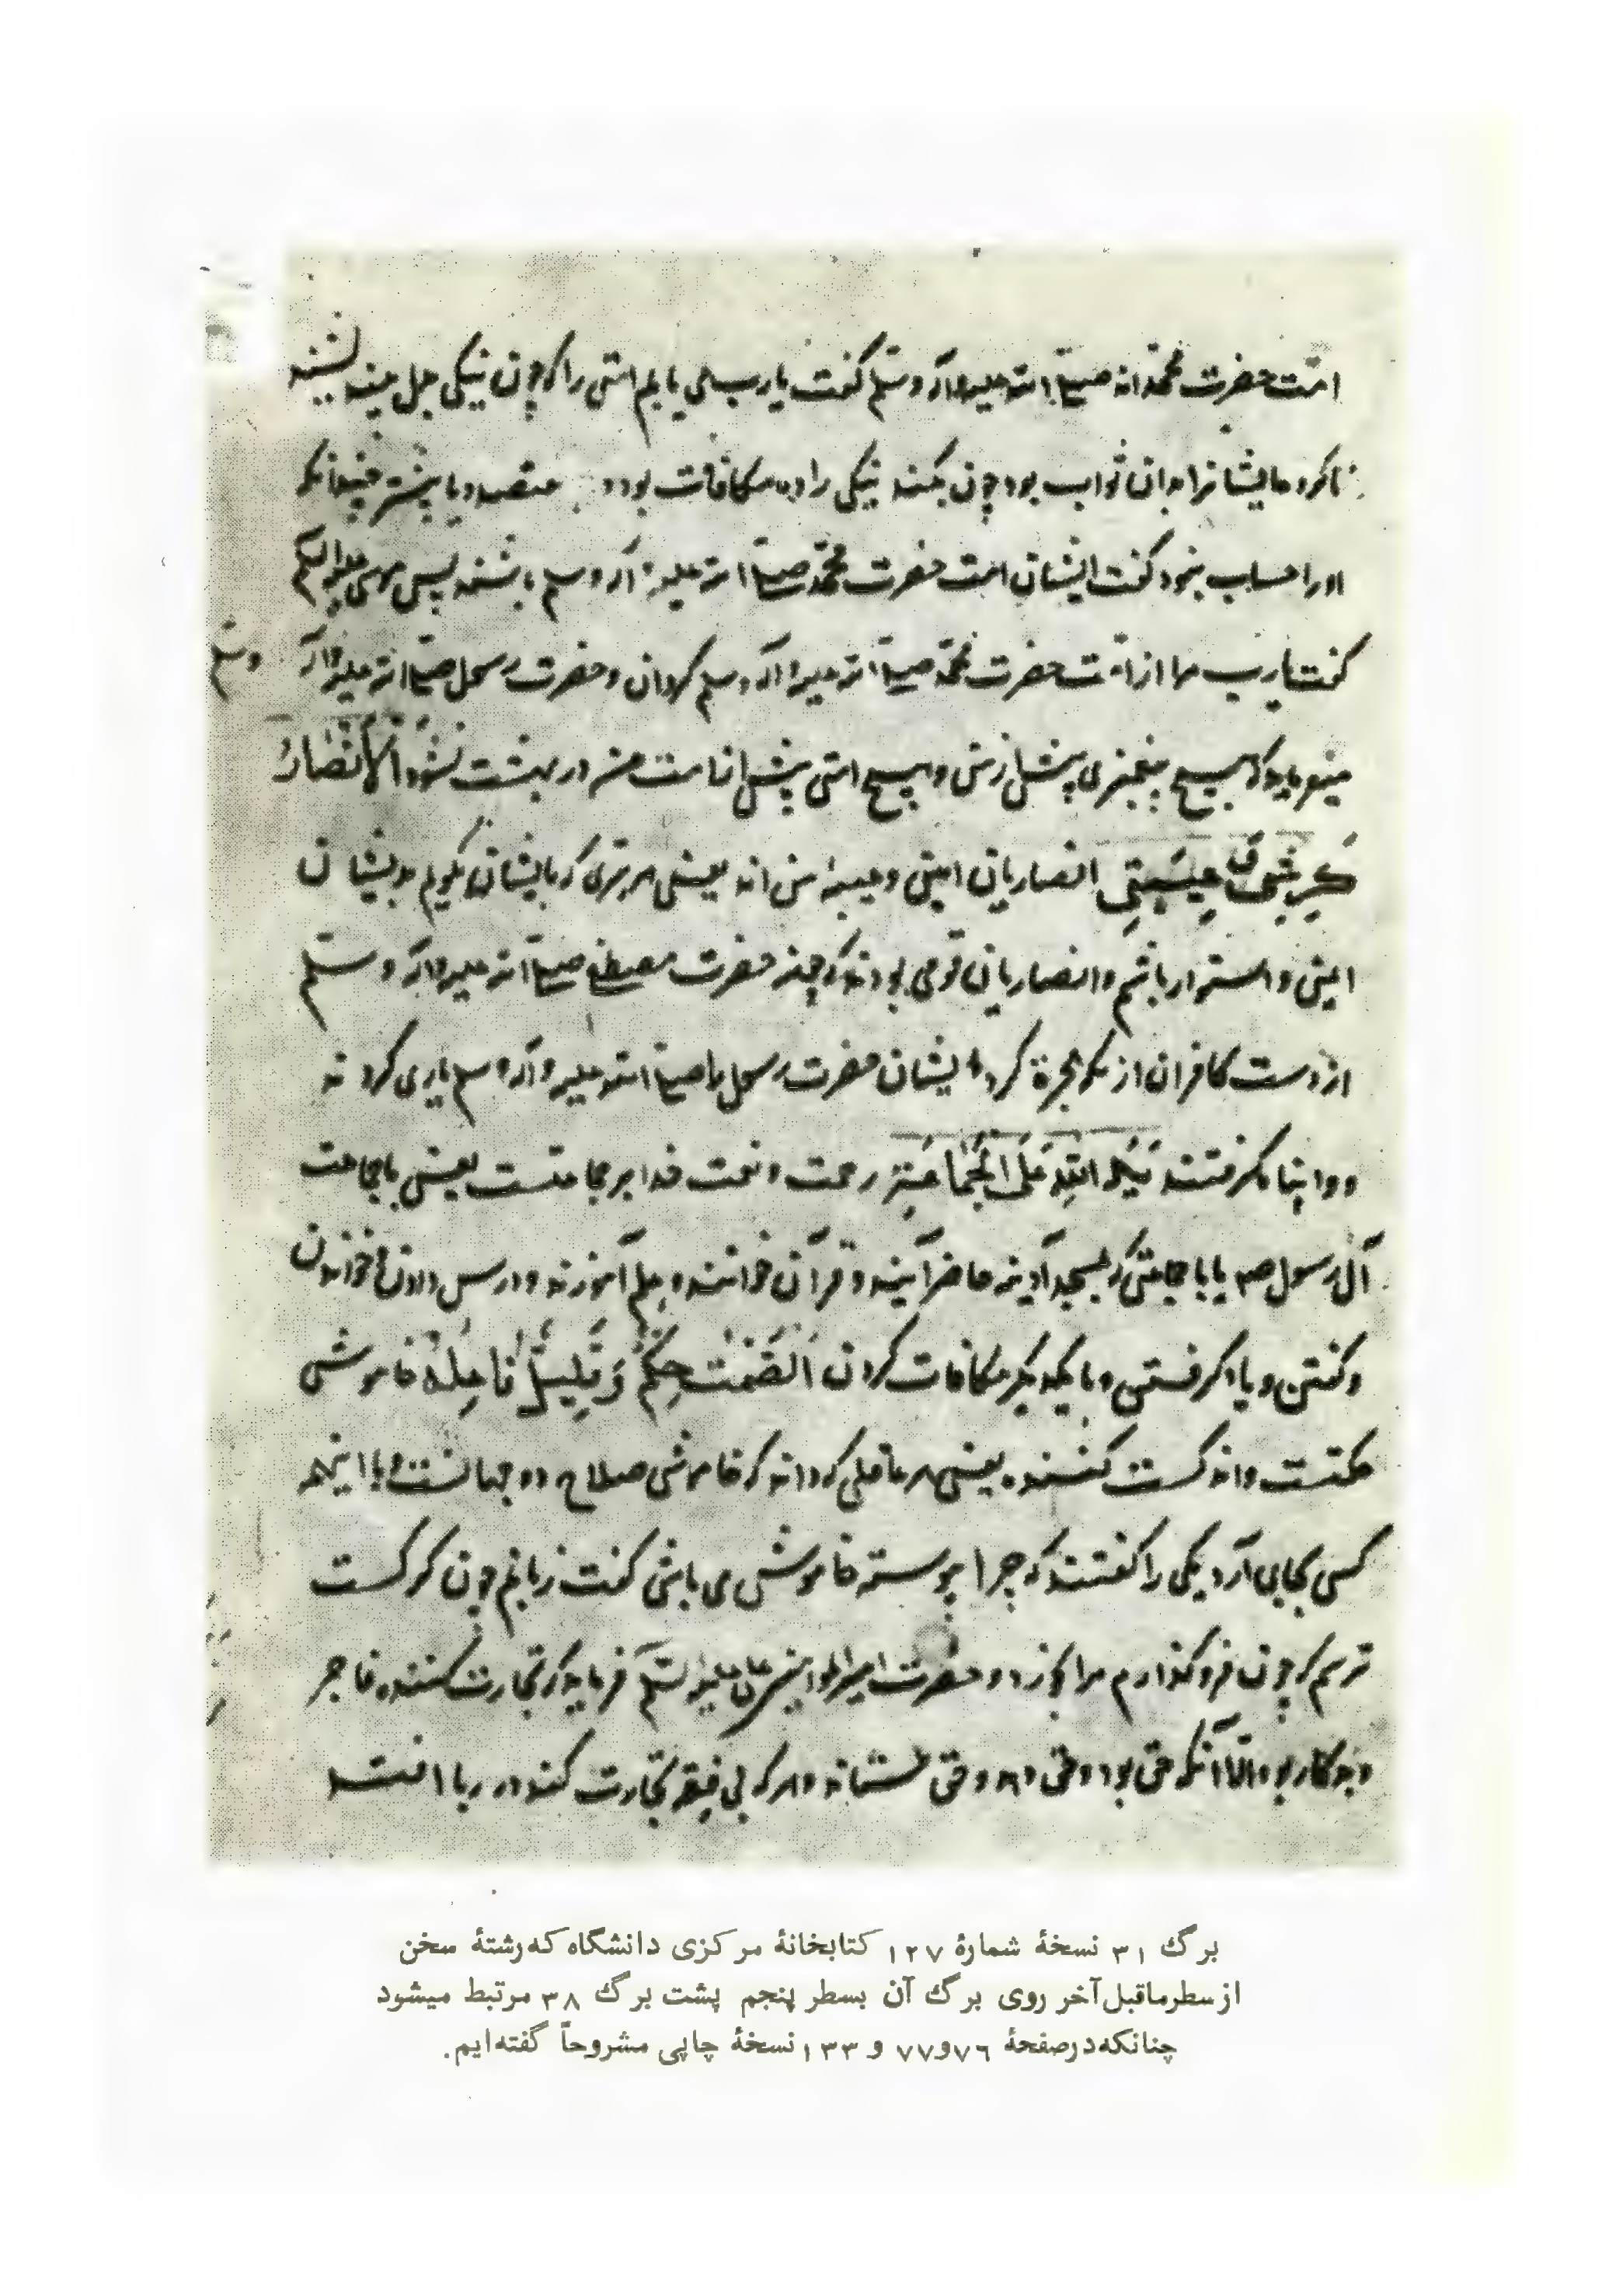 امت حضرت محمداند صلی الله علیه وآله وسلم گفت یارب می یابم امتی را که چون نیکی
ناکرده ایشانرا بدان ثواب بود چون بکنند نیکی را ده مکافات بود
اورا حساب بنود گفت ایشان امت حضرت محمد صلی الله علیه وآله وسلم باشند پس موسی
گفت یارب مرا از امت حضرت محمد صلی الله علیه وآله وسلم گردان و حضرت رسول صلی الله علیه وآله وسلم
میفرماید که هیچ پیغمبری پیش از من و هیچ امتی پیش از امت من در بهشت نشود اَلْأَنْصَارُ
كَرِشِي وَ عَيْبَتِي انصاریان امین و عیبهٔ من اند یعنی هر سری که بایشان بگویم بدیشان
امین و استوار باشم و انصاریان قومی بودند که چند حضرت مصطفی صلی الله علیه وآله وسلم
از دست کافران از مکه هجرة کرد ایشان حضرت رسول را صلی الله علیه وآله وسلم یاری کردند
و وا پناه گرفتند يَدُ اللهِ عَلَى الْجَمَاعَةِ رحمت و نعمت خدا بر جماعتست یعنی با جماعت
آل رسول صم یا با جماعتی که بمسجد آدینه حاضر آیند و قرآن خوانند و علم آموزند و درس دادن و خواندن
و گفتن و یاد گرفتن و با یکدیگر مکافات کردن اَلصَّمْتُ حِكَمٌ وَ قَلِيلٌ فَاعِلُهُ خاموشی
حکمتست و اندکست کننده یعنی هر عاقلی که داند که خاموشی صلاح دو جهانست و با اینهمه
کسی بجای آرد یکی را گفتند که چرا پیوسته خاموش می باشی گفت زبانم چون گرگست
ترسم که چون فرو گذارم مرا بخورد و حضرت امیرالمؤمنین علی علیه السلم فرماید که تجارت کننده فاجر
و بدکار بود الا آنکه حق بود و حق دهد و حق ستاند و هرکه بی فقه تجارت کند در ربا افتد
برگ ۳۱ نسخهٔ شمارهٔ ۱۲۷ کتابخانهٔ مرکزی دانشگاه که رشتهٔ سخن
از سطر ماقبل آخر روی برگ آن بسطر پنجم پشت برگ ۳۸ مرتبط میشود
چنانکه در صفحهٔ ۷۶ و ۷۷ و ۱۳۳ نسخهٔ چاپی مشروحاً گفته‌ایم.